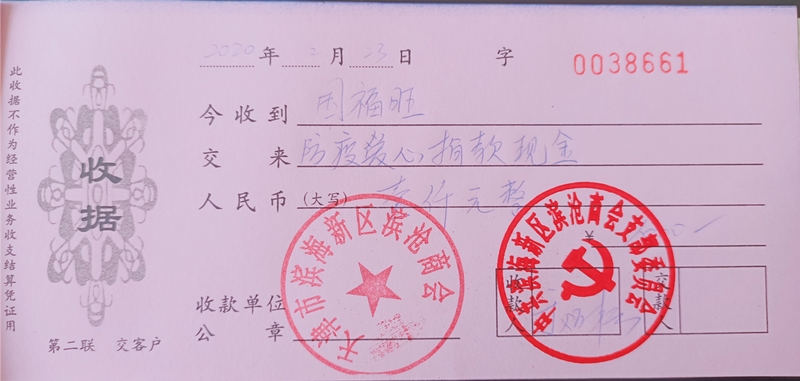 2020年2月23日 字 0038661
今收到 国福旺
交来 防疫爱心捐款现金
人民币(大写) 壹仟元整
¥
收款单位
公章
收款人
交款人
收据
此收据不作为经营性业务收支结算凭证用
第二联 交客户
天津市滨海新区滨沧商会
滨海新区滨沧商会支部委员会